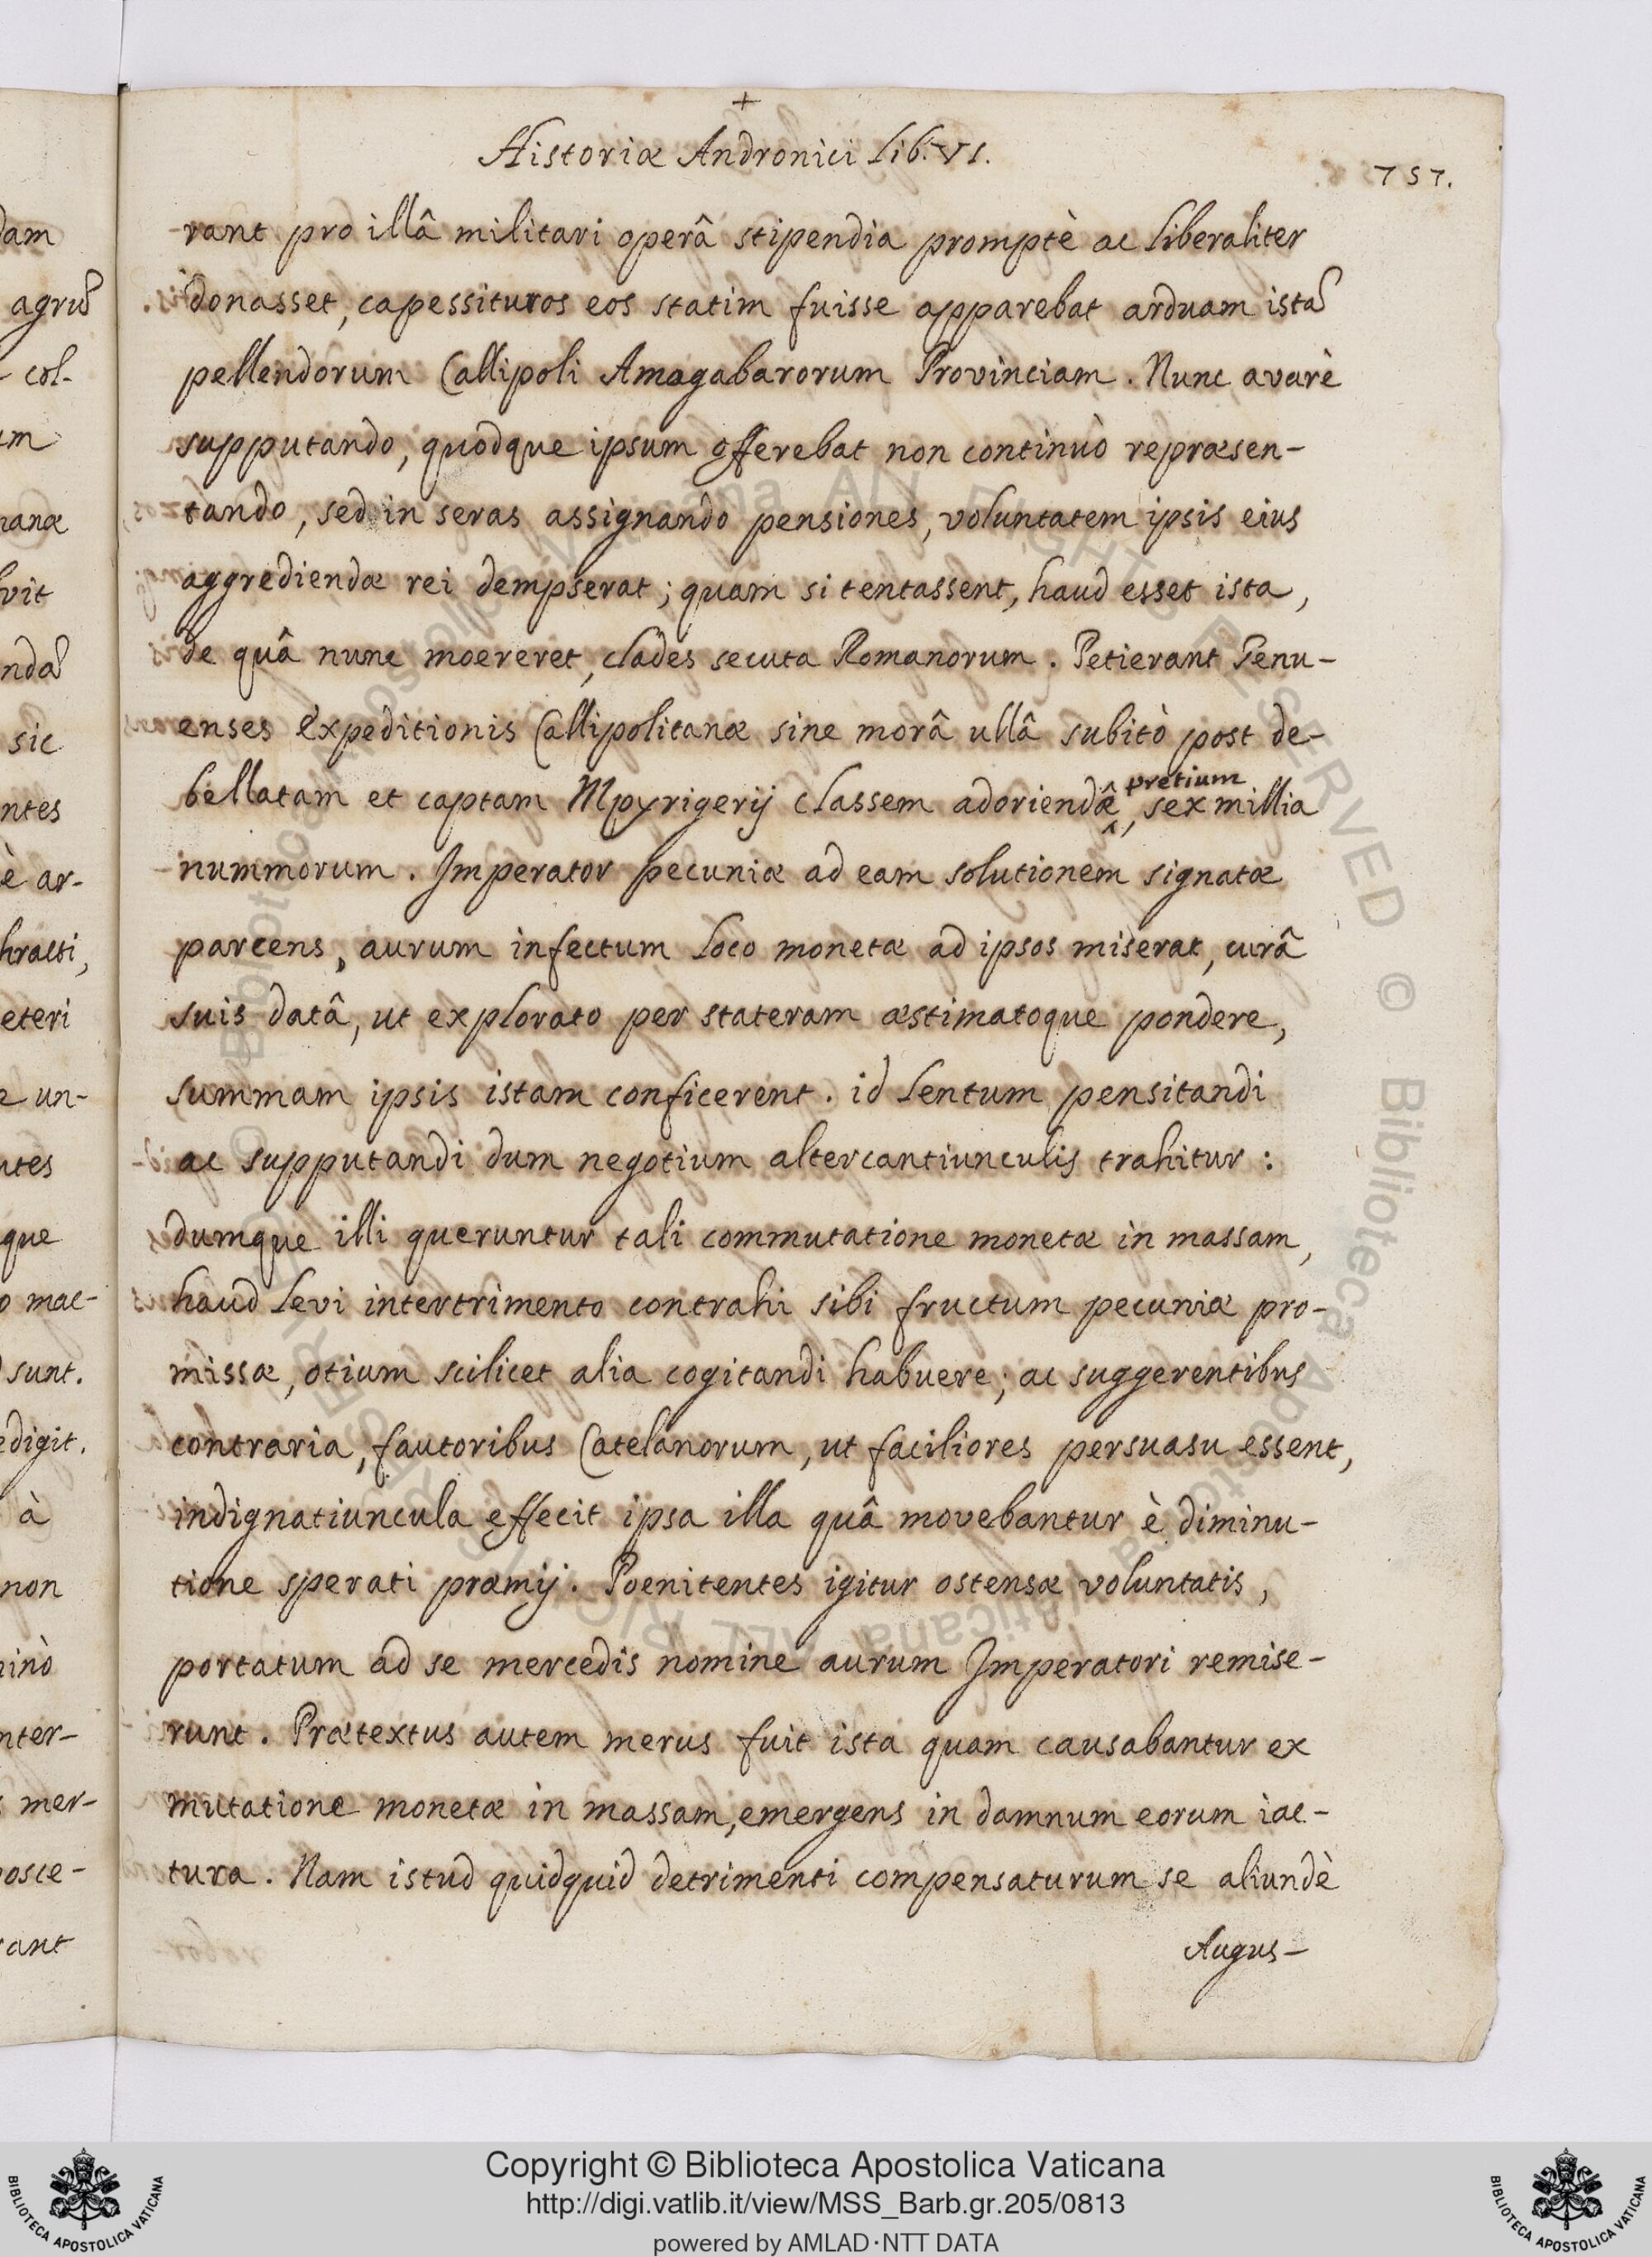 +
Historiæ Andronici Lib. VI.
757.
rant pro illâ militari operâ stipendia promptè ac liberaliter
donasset, capessituros eos statim fuisse apparebat arduam istã
pellendorum Callipoli Amogabarorum Provinciam. Nunc avarè
supputando, quodque ipsum offerebat non continuò repræsen-
tando, sed in seras assignando pensiones, voluntatem ipsis eius
aggrediendæ rei dempserat; quam si tentassent, haud esset ista,
de quâ nunc moereret, clades secuta Romanorum. Petierant Genu-
enses expeditionis Callipolitanæ sine morâ ullâ subitò post de-
pretium
bellatam et captam Mpyrigerij classem adoriendæ, sex millia
nummorum. Imperator pecuniæ ad eam solutionem signatæ
parcens, aurum infectum loco monetæ ad ipsos miserat, curâ
suis datâ, ut explorato per stateram æstimatoque pondere,
summam ipsis istam conficerent. id lentum pensitandi
ac supputandi dum negotium altercantiunculis trahitur:
dumque illi queruntur tali commutatione monetæ in massam,
haud levi intertrimento contrahi sibi fructum pecuniæ pro-
missæ, otium scilicet alia cogitandi habuere; ac suggerentibus
contraria, fautoribus Catelanorum, ut faciliores persuasu essent,
indignatiuncula effecit ipsa illa quâ movebantur è diminu-
tione sperati præmij. Poenitentes igitur ostensæ voluntatis,
portatum ad se mercedis nomine aurum Imperatori remise-
runt. Prætextus autem merus fuit ista quam causabantur ex
mutatione monetæ in massam, emergens in damnum eorum iac-
tura. Nam istud quidquid detrimenti compensaturum se aliundè
Augus-
dam
agrũ
col-
um
nanæ
vit
ndã
sic
ntes
è ar-
hracti,
eteri
un-
ntes
que
o mac-
sunt.
edigit.
à
non
ninò
nter-
mer-
posce-
rant
© Biblioteca Apostolica Vaticana ALL RIGHTS RESERVED © Biblioteca Apostolica Vaticana ALL RIGHTS RESERVED
Copyright © Biblioteca Apostolica Vaticana
http://digi.vatlib.it/view/MSS_Barb.gr.205/0813
powered by AMLAD·NTT DATA
BIBLIOTECA APOSTOLICA VATICANA
BIBLIOTECA APOSTOLICA VATICANA